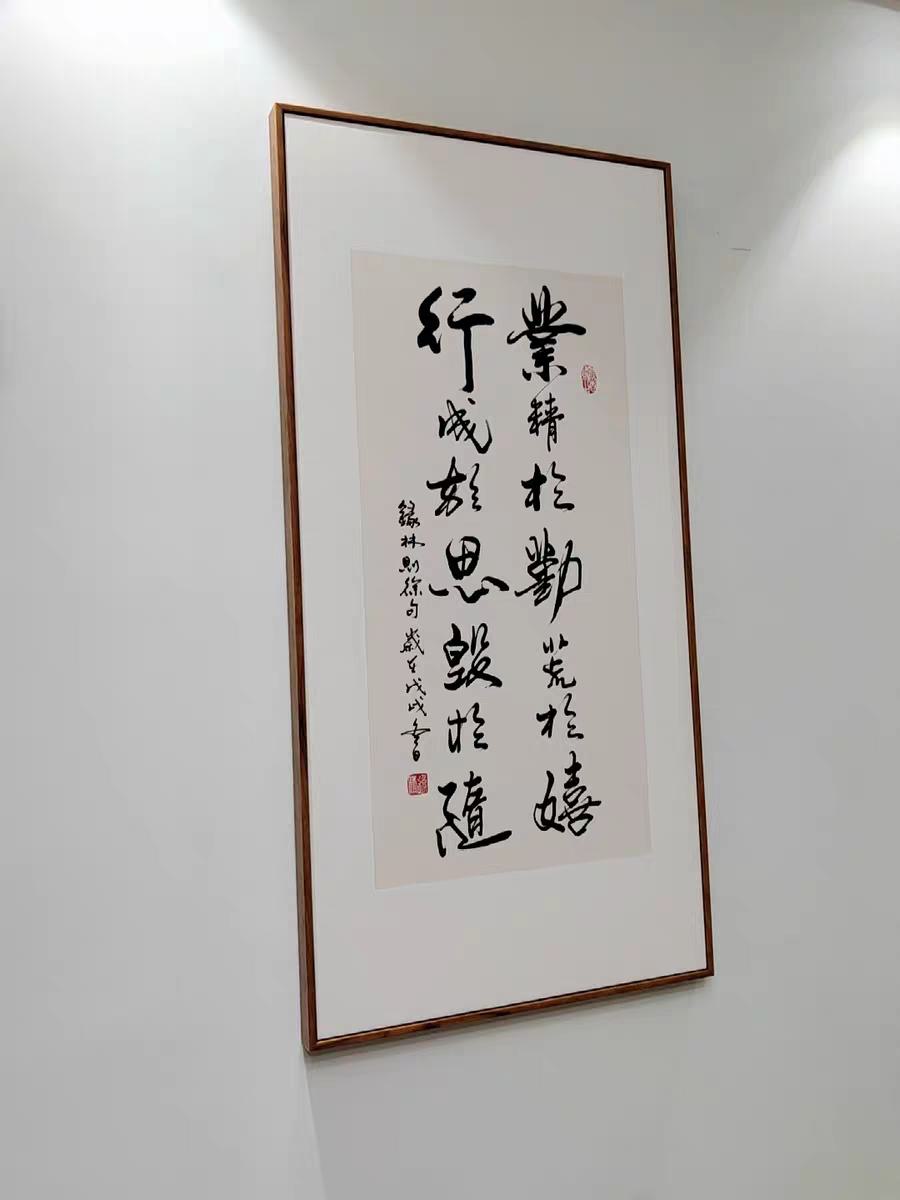 業精於勤荒於嬉
行成於思毀於隨
錄林則徐句歲在戊戌